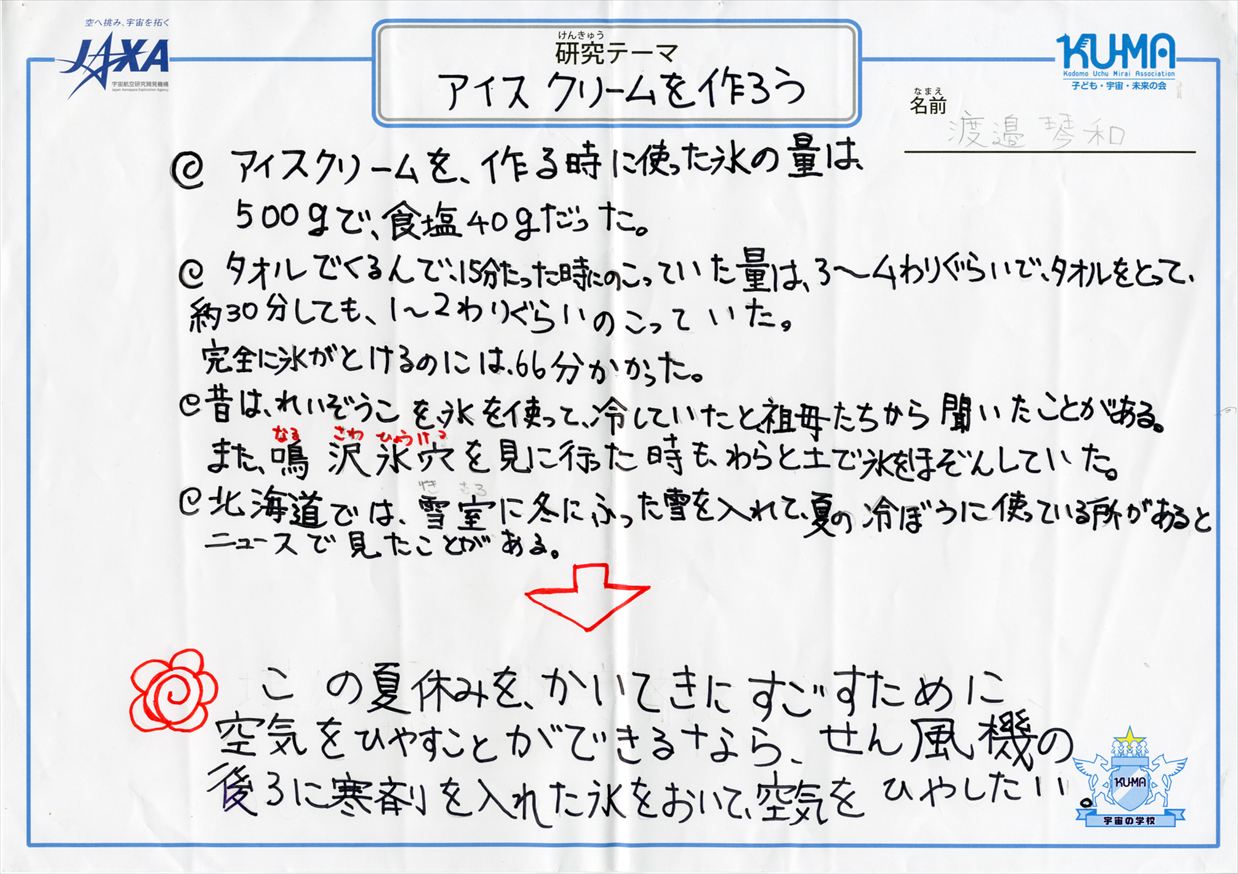 空へ挑み、宇宙を拓く
JAXA
宇宙航空研究開発機構
Japan Aerospace Exploration Agency
けんきゅう
研究テーマ
アイスクリームを作ろう
KU-MA
Kodomo Uchu Mirai Association
子ども・宇宙・未来の会
なまえ
名前
渡邉琴和
アイスクリームを、作る時に使った氷の量は、
500gで、食塩40gだった。
タオルでくるんで、15分たった時にのこっていた量は、3〜4わりぐらいで、タオルをとって、
約30分しても、1〜2わりぐらいのこっていた。
完全に氷がとけるのには、66分かかった。
昔は、れいぞうこを、氷を使って、冷していたと、祖母たちから聞いたことがある。
なる さわ ひょうけつ
また、鳴沢氷穴を見に行った時も、わらと土で氷をほぞんしていた。
北海道では、雪室に冬にふった雪を入れて、夏の冷ぼうに使っている所があると
ニュースで見たことがある。
この夏休みを、かいてきにすごすために
空気をひやすことができるなら、せん風機の
後ろに寒剤を入れた氷をおいて、空気をひやしたい。
KU-MA
宇宙の学校